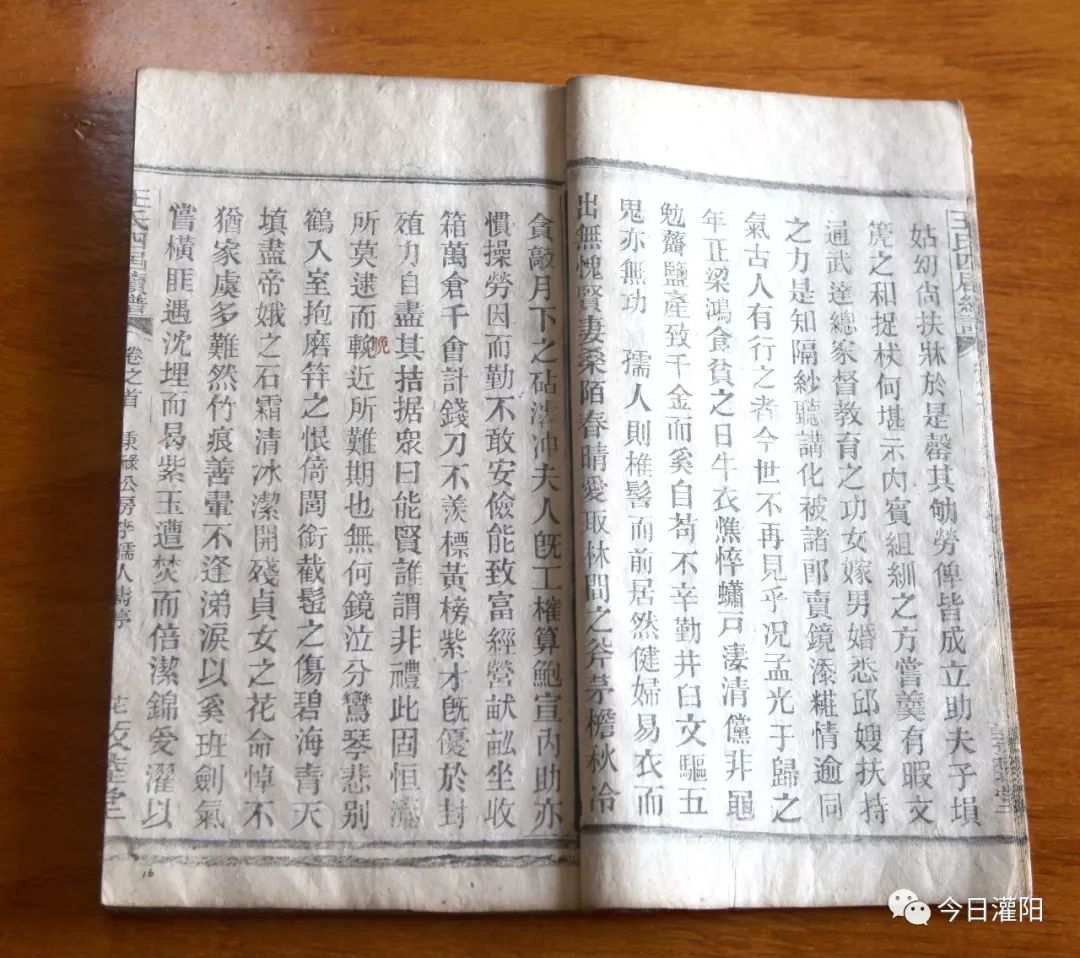 姑幼尚扶牀於是罄其劬勞俾皆成立助夫子塤
箎之和捉栿何堪示內賓組紃之方嘗羹有暇文
通武達總家督教育之功女嫁男婚悉邱嫂扶持
之力是知隔紗聽講化被諸郎賣鏡添糚情逾同
氣古人有行之者今世不再見乎况孟光于歸之
年正梁鴻食貧之日牛衣憔悴蠨戸淒清儻非黽
勉虀鹽產致千金而奚自苟不辛勤井臼文驅五
鬼亦無功 孺人則椎髻而前居然健婦易衣而
出無愧賢妻桑陌春晴愛取林間之斧茅檐秋冷
貪敲月下之砧濬冲夫人旣工榷算鮑宣內助亦
慣操勞因而勤不敢安儉能致富經營猷訟坐收
箱萬倉千會計錢刀不羨標黃榜紫才旣優於封
殖力自盡其拮据衆曰能賢誰謂非禮此固恒
所莫逮而輓近所難期也無何鏡泣分鸞琴悲别
晩
鶴入室抱磨笄之恨倚閭銜截髢之傷碧海青天
填盡帝娥之石霜清冰潔開殘貞女之花命悼不
猶家虞多難然竹痕善暈不逢涕淚以奚班劍氣
嘗橫匪遇沈埋而曷紫玉遭焚而倍潔錦爰濯以
王氏四届續譜 卷之首 公房李孺人
16
今日灌阳